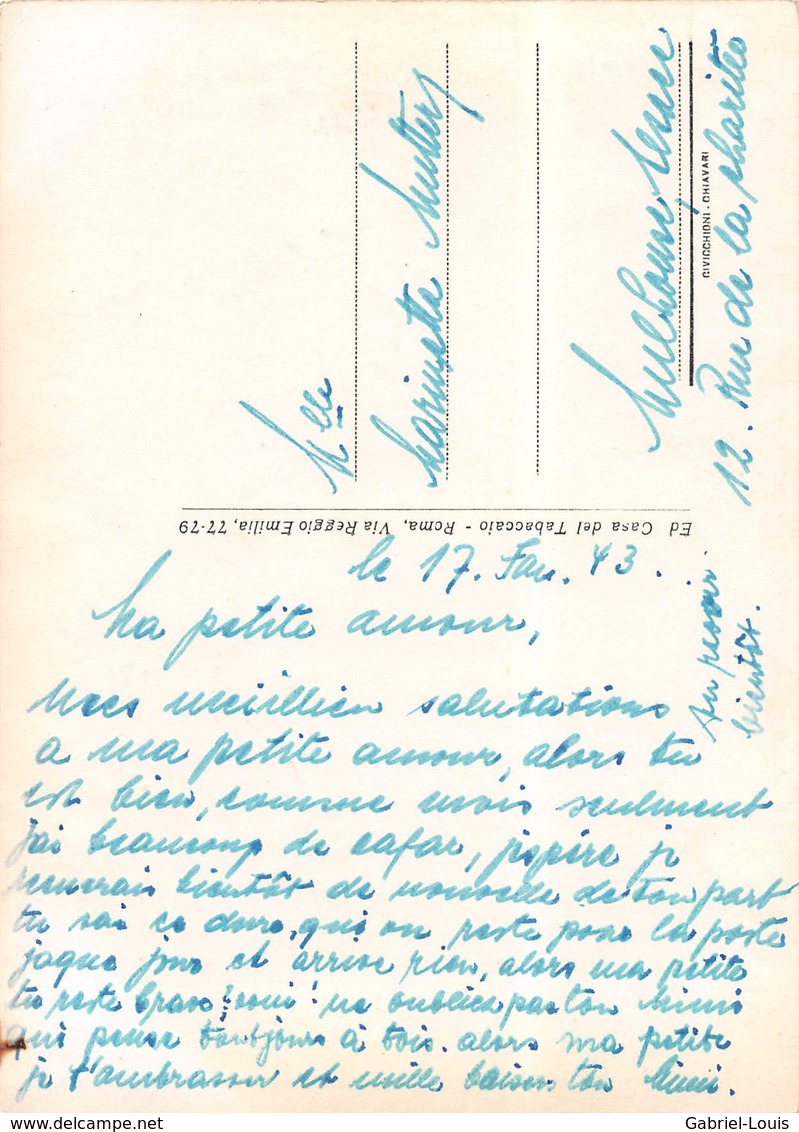 Mlle
Marinette Mutters
Mulhouse,
12. Rue de la sharitée
CIVICCHIONI - CHIAVARI
Ed Casa del Tabaccaio - Roma, Via Reggio Emilia, 77-79
le 17. Jan. 43.
Ma petite amour,
Mees meiillien salutations
a ma petite amour, alors tu
est bien, comme mois seulment
j'ai beaucoup de cafar, j'spére je
reuverais bientôt de nouvelle de ton part
tu sai ce dure, qui on reste pour la poste
jaque jour et arrive rien, alors ma petite
tu reste brave! ooui! ne oublies pas ton Mimi
qui pense tontjours à tois. alors ma petite
je t'ambrasser et mille baisers ton Mimi.
Au revoir
bientôt.
Gabriel-Louis